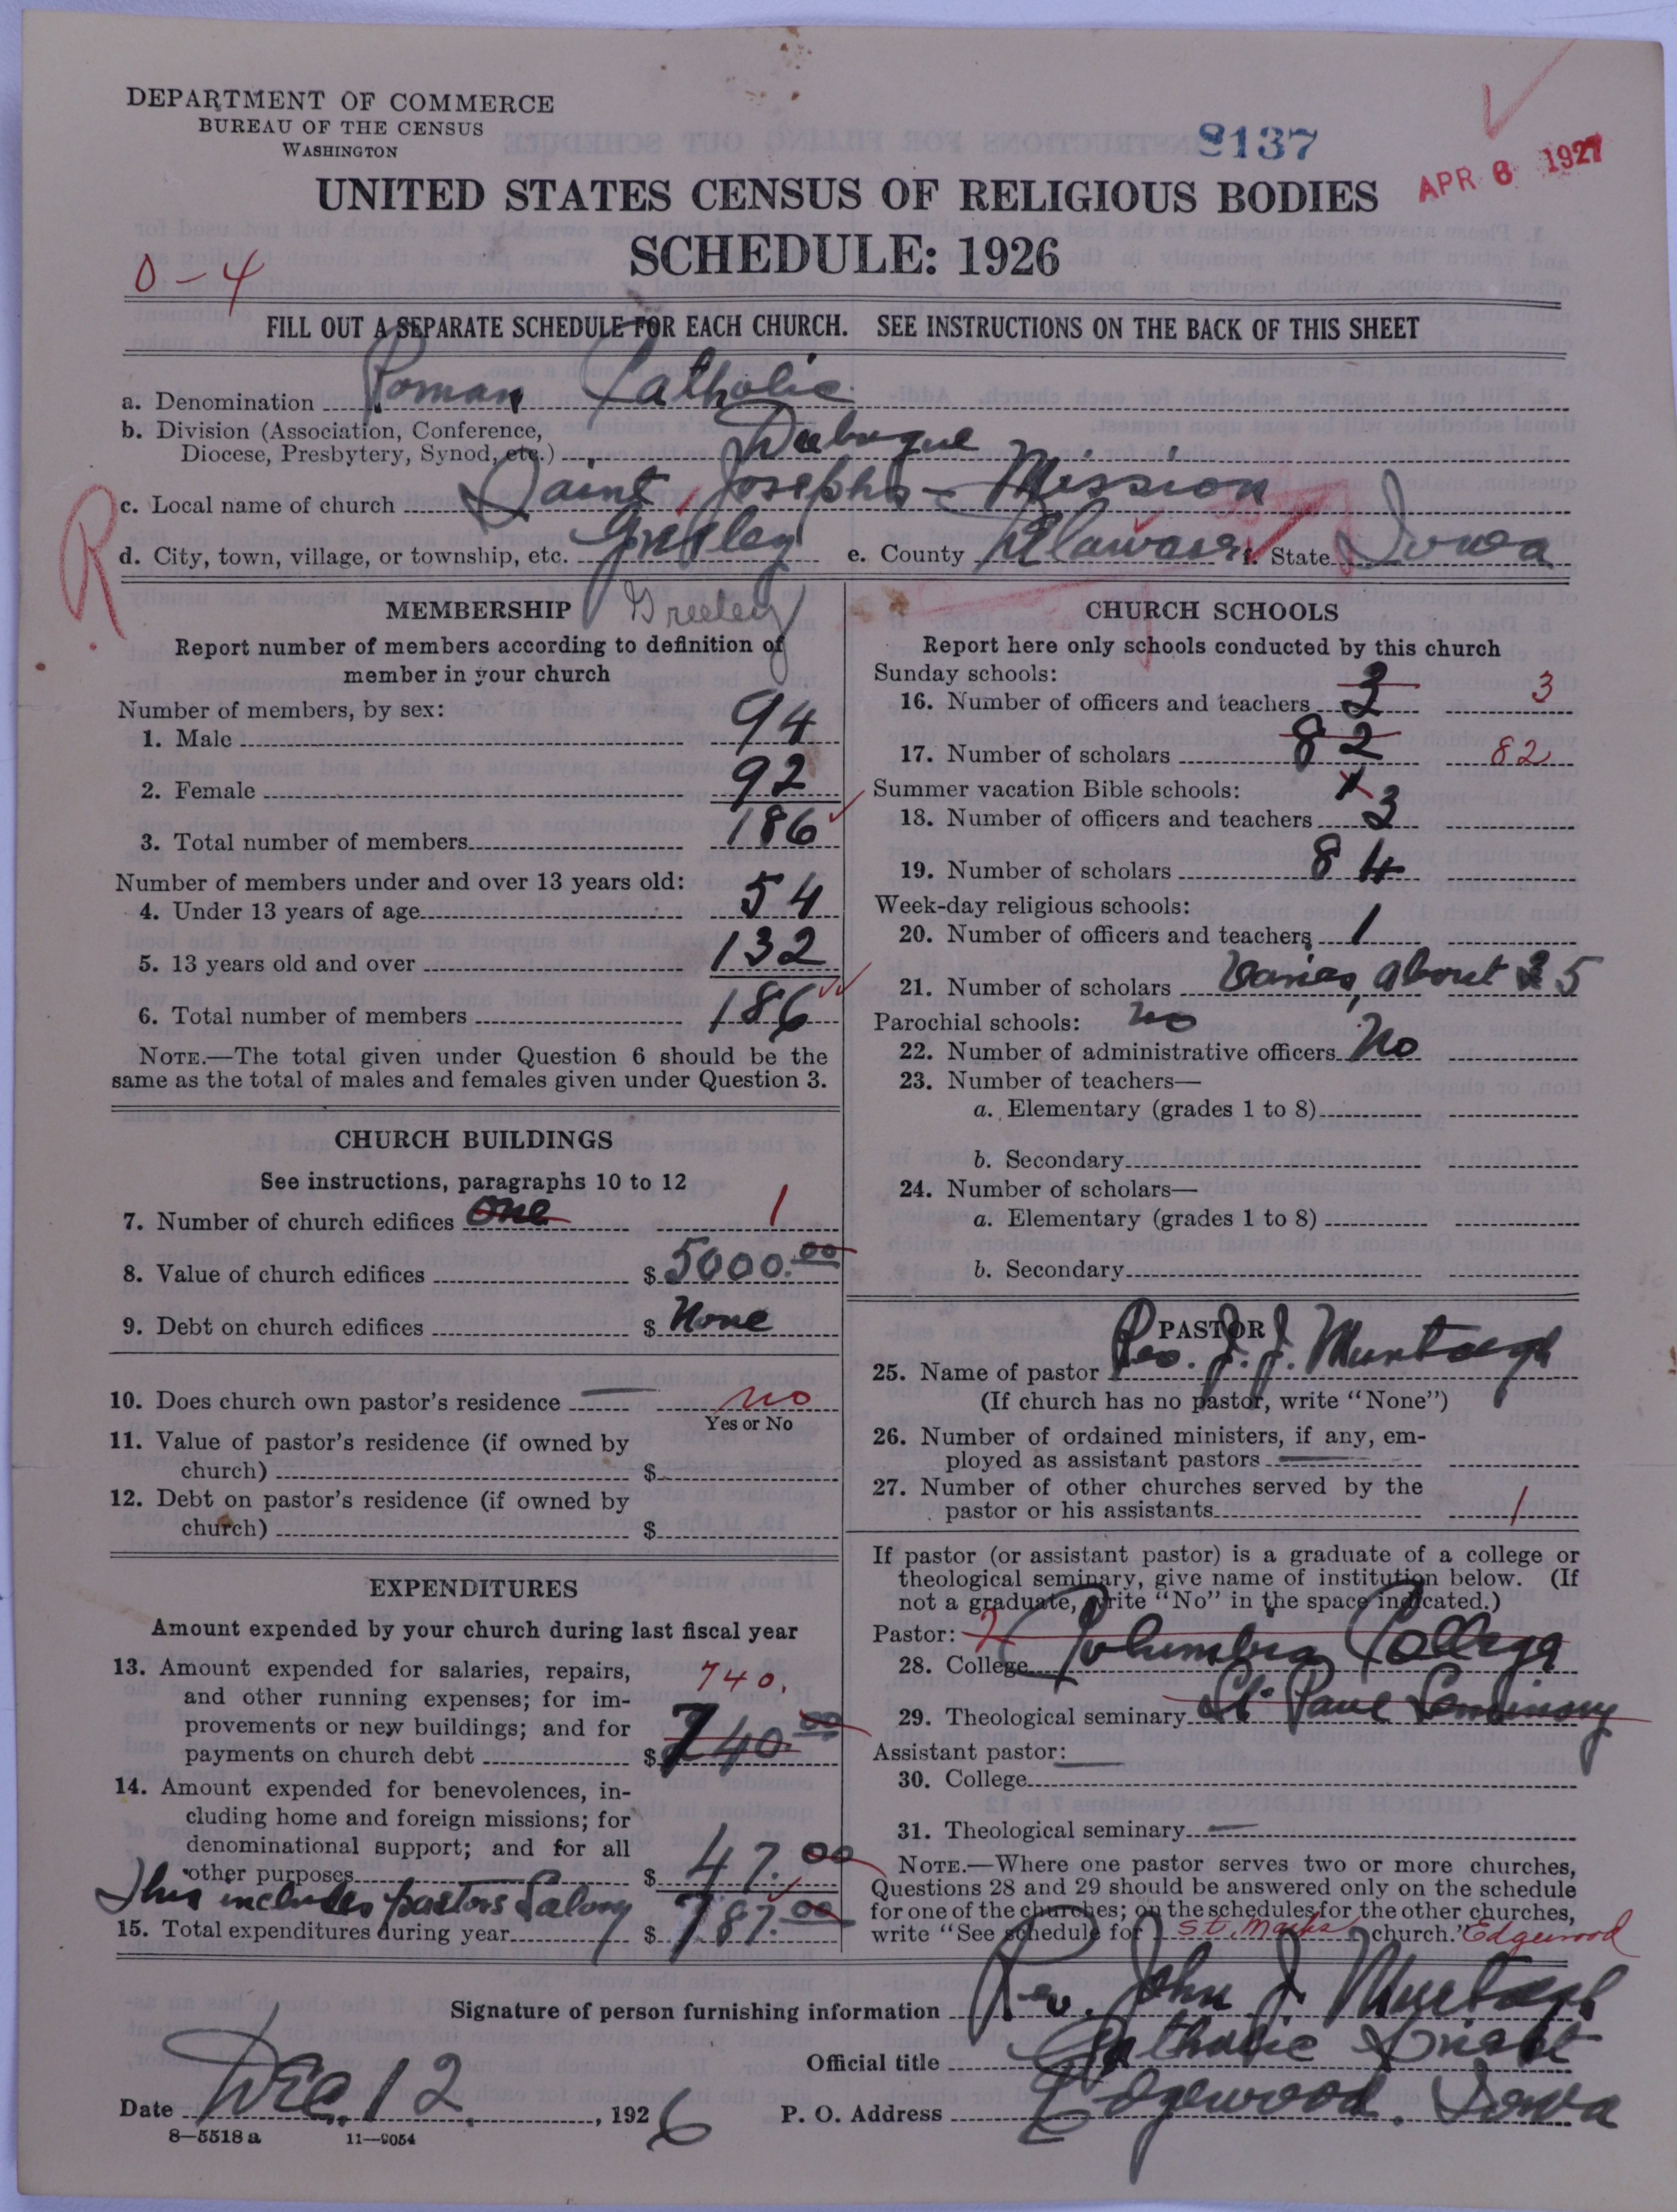 DEPARTMENT OF COMMERCE
BUREAU OF THE CENSUS
WASHINGTON
8137
APR 6 1927
UNITED STATES CENSUS OF RELIGIOUS BODIES
SCHEDULE: 1926
0-4
FILL OUT A SEPARATE SCHEDULE FOR EACH CHURCH. SEE INSTRUCTIONS ON THE BACK OF THIS SHEET
a. Denomination Roman Catholic
b. Division (Association, Conference,
Diocese, Presbytery, Synod, etc.) Dubuque
c. Local name of church Saint Josephs - Mission
R
d. City, town, village, or township, etc. Greeley e. County Delaware f. State Iowa
Greeley
MEMBERSHIP
Report number of members according to definition of
member in your church
Number of members, by sex:
1. Male 94
2. Female 92
3. Total number of members 186
Number of members under and over 13 years old:
4. Under 13 years of age 54
5. 13 years old and over 132
6. Total number of members 186
NOTE.—The total given under Question 6 should be the
same as the total of males and females given under Question 3.
CHURCH BUILDINGS
See instructions, paragraphs 10 to 12
7. Number of church edifices One 1
8. Value of church edifices $ 5000.00
9. Debt on church edifices $ None
10. Does church own pastor's residence no
Yes or No
11. Value of pastor's residence (if owned by
church) $
12. Debt on pastor's residence (if owned by
church) $
EXPENDITURES
Amount expended by your church during last fiscal year
13. Amount expended for salaries, repairs, 740.
and other running expenses; for im-
provements or new buildings; and for
payments on church debt $ 740.00
14. Amount expended for benevolences, in-
cluding home and foreign missions; for
denominational support; and for all
other purposes $ 47.00
This includes pastors Salary
15. Total expenditures during year $ 787.00
CHURCH SCHOOLS
Report here only schools conducted by this church
Sunday schools:
16. Number of officers and teachers 3 3
17. Number of scholars 82 82
Summer vacation Bible schools:
18. Number of officers and teachers 3
19. Number of scholars 84
Week-day religious schools:
20. Number of officers and teachers 1
21. Number of scholars Varies, about 25
Parochial schools: no
22. Number of administrative officers No
23. Number of teachers—
a. Elementary (grades 1 to 8)
b. Secondary
24. Number of scholars—
a. Elementary (grades 1 to 8)
b. Secondary
PASTOR
25. Name of pastor Rev. J. J. Murtagh
(If church has no pastor, write "None")
26. Number of ordained ministers, if any, em-
ployed as assistant pastors
27. Number of other churches served by the
pastor or his assistants 1
If pastor (or assistant pastor) is a graduate of a college or
theological seminary, give name of institution below. (If
not a graduate, write "No" in the space indicated.)
Pastor: 2
28. College Columbia College
29. Theological seminary St. Paul Seminary
Assistant pastor:
30. College
31. Theological seminary
NOTE.—Where one pastor serves two or more churches,
Questions 28 and 29 should be answered only on the schedule
for one of the churches; on the schedules for the other churches,
write "See schedule for St. Marks church." Edgewood
Signature of person furnishing information Rev. John J Murtagh
Official title Catholic Priest
Date Dec. 12, 1926 P. O. Address Edgewood, Iowa
8—5518 a 11—9054